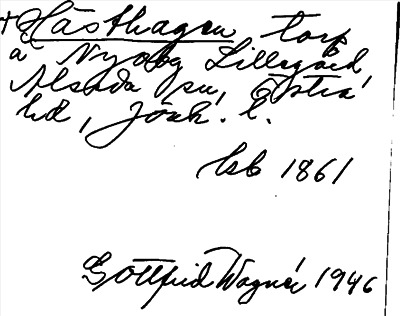 + Hästhagen torp
å Nyborg Lillegård
Alseda sn, Östra
hd, Jönk. l.
hsb 1861
Gottfrid Wagnér 1946